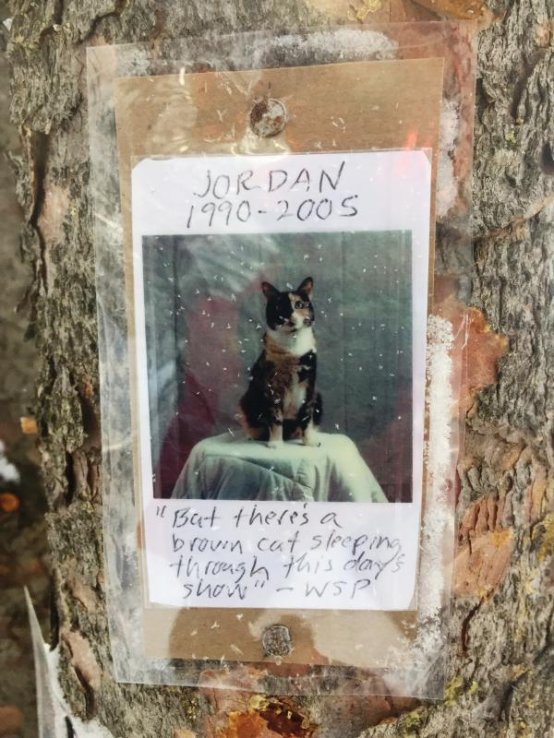 JORDAN
1990-2005
"But there's a
brown cat sleeping
through this day's
show" - WSP